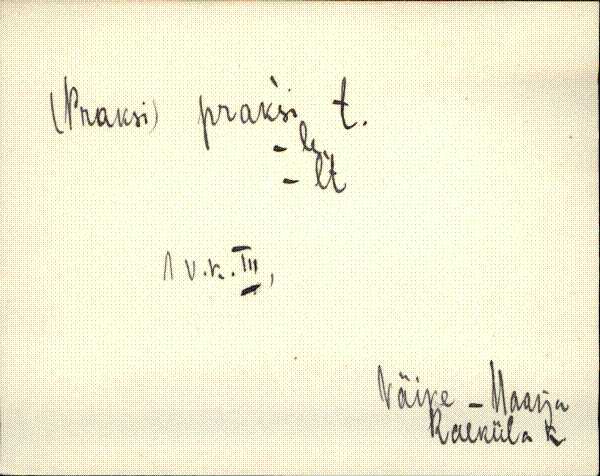 (Praksi) prak̀si, t.
- le,
- lt
1 v.k. III,
Väike - Maarja
Raeküla k